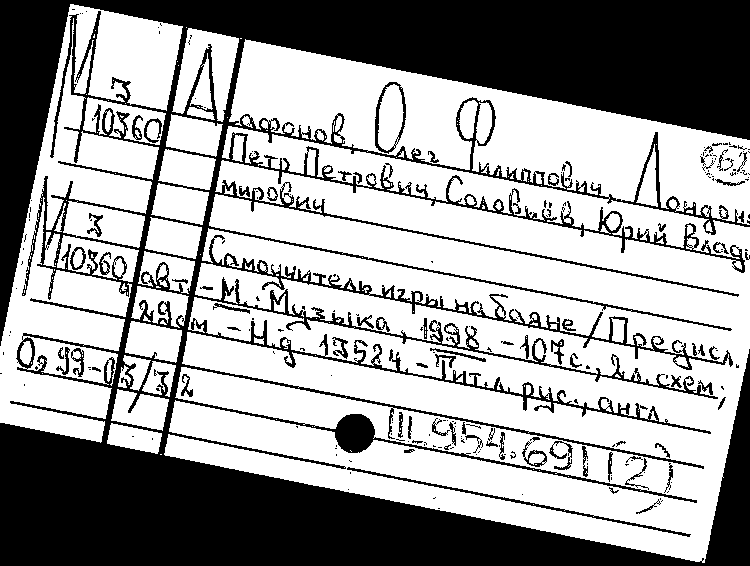 М З
10360
Агафонов, Олег Филиппович, Лондон
Петр Петрович, Соловьёв, Юрий Влади
мирович
662
М З
10360а
Самоучитель игры на баяне / Предисл.
авт. - М.: Музыка, 1998. - 107 с., 2 л. схем;
29 см. - Н.д. 13524. - Тит. л. рус., англ.
О, 99-03/32
III 954.691 (2)